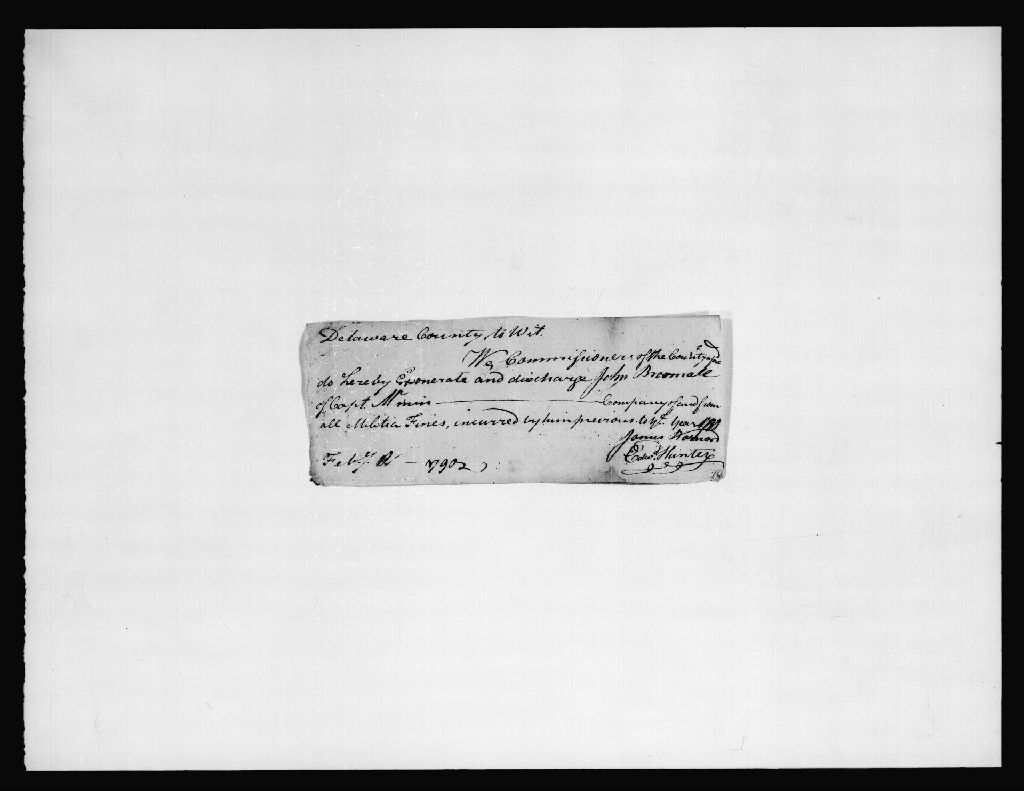 Delaware County, to Wit.
We Commissioners of the County
do hereby Exonerate and discharge John Broomall
of Capt. Company of and from
all Militia Fines, incurred by him previous to ye. Year
James Barnard
Feby. Edwd. Hunter